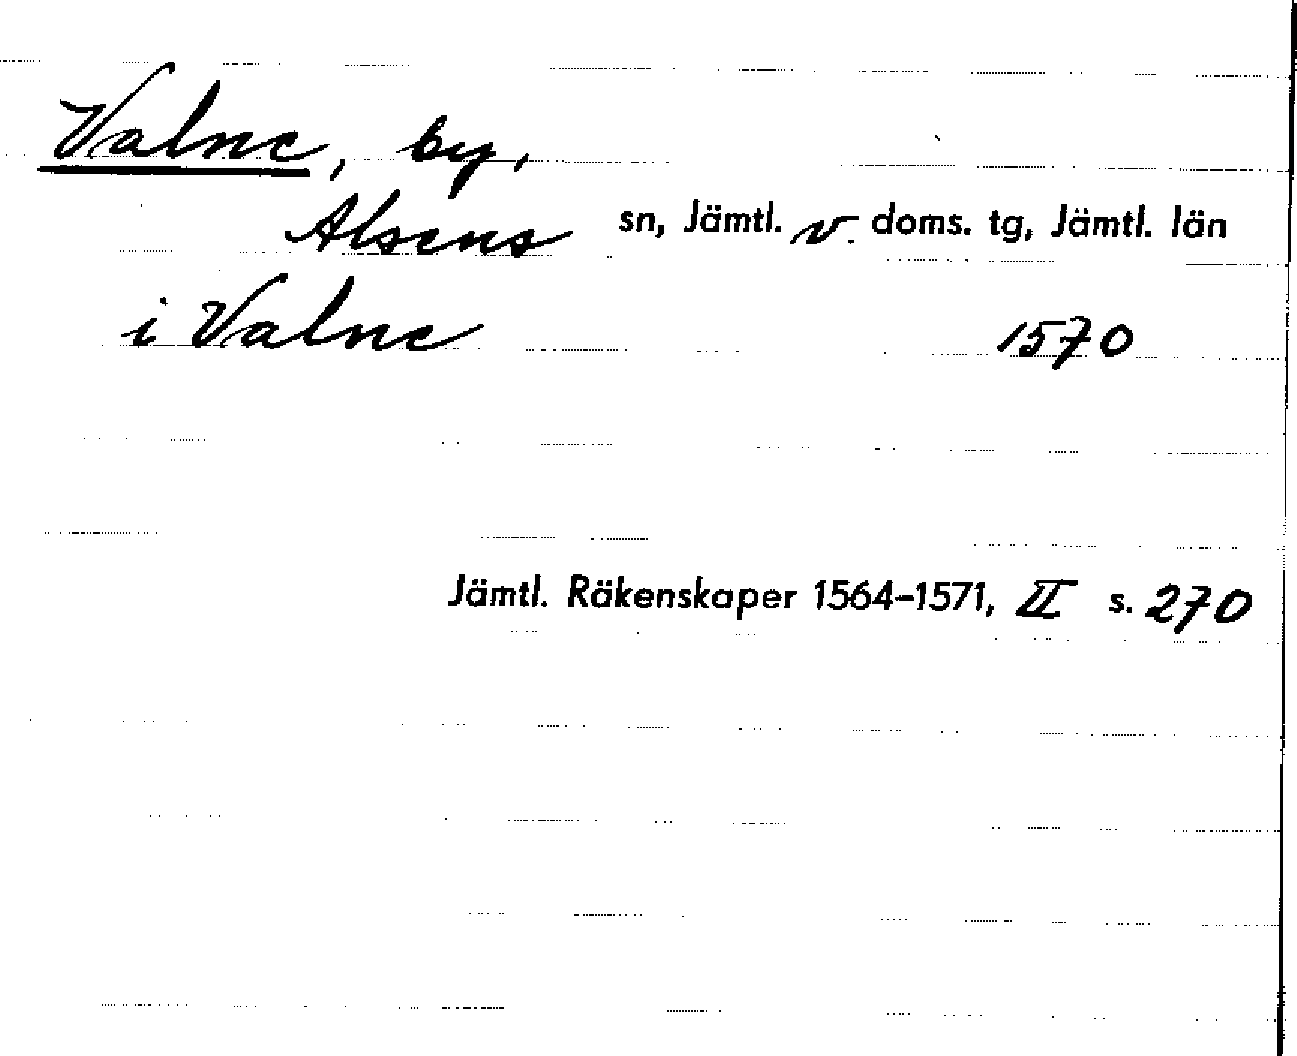 Valne, by,
Alsens sn, Jämtl. v. doms. tg, Jämtl. län
i Valne 1570
Jämtl. Räkenskaper 1564-1571, II s. 270